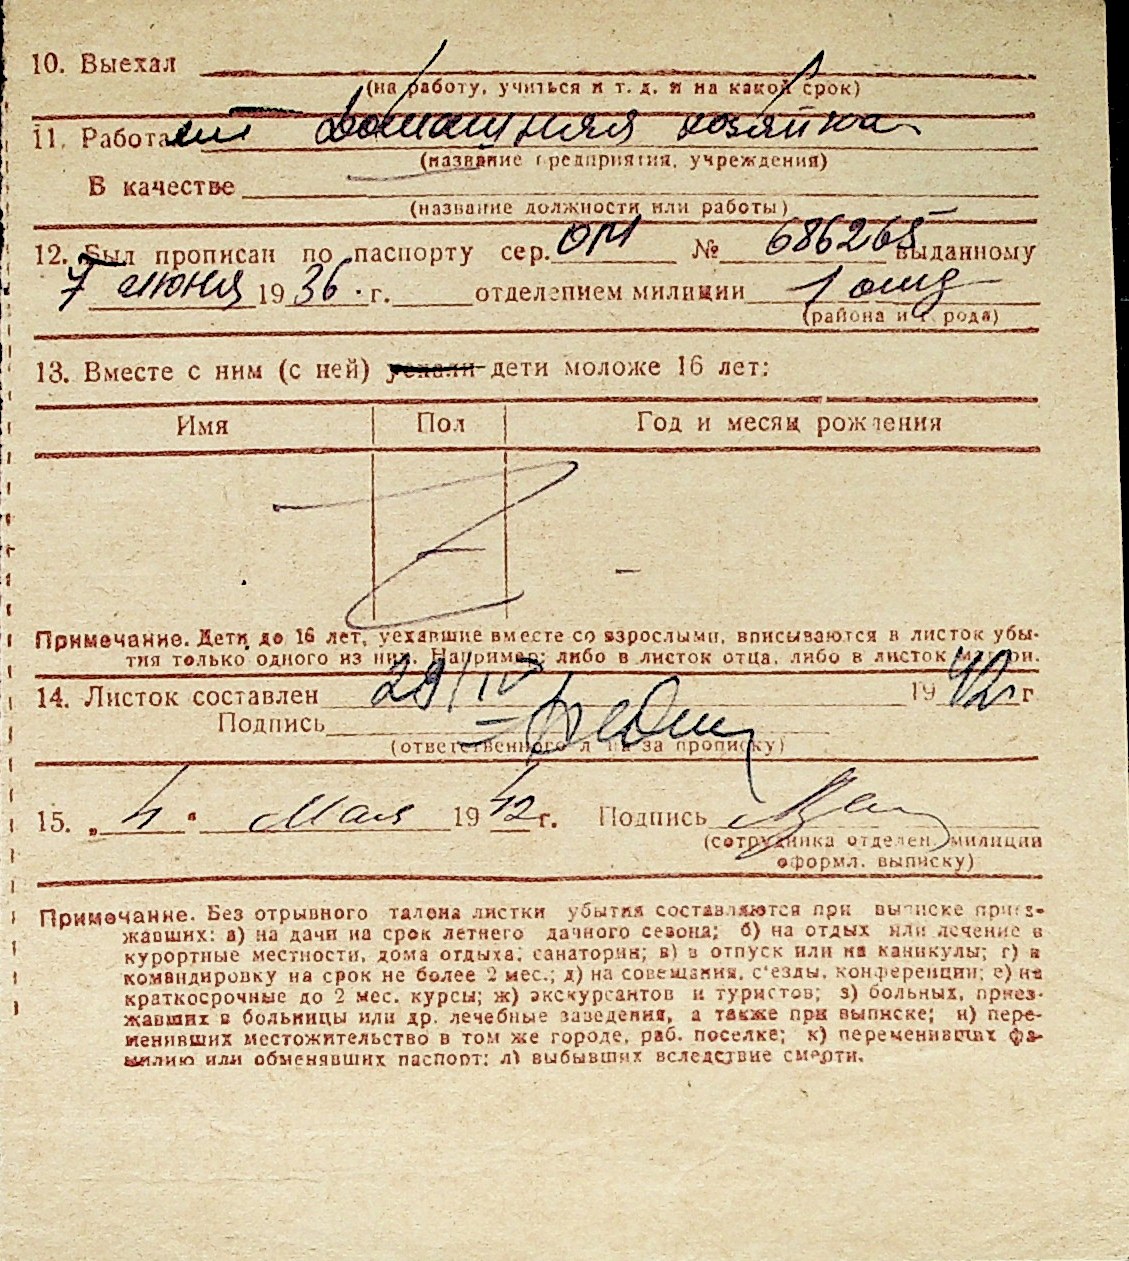 10. Выехал
(на работу, учиться и т. д. и на какой срок)
11. Работает Домашняя хозяйка
(название предприятия, учреждения)
В качестве
(название должности или работы)
12. Был прописан по паспорту сер. ОМ № 686265 выданному
7 июня 1936. г. отделением милиции 1
(района и города)
13. Вместе с ним (с ней) уехали дети моложе 16 лет:
Имя Пол Год и месяц рождения
Примечание. Дети до 16 лет, уехавшие вместе со взрослыми, вписываются в листок убы-
тия только одного из них. Например: либо в листок отца, либо в листок матери.
14. Листок составлен 29/IV 1942 г
Подпись
(ответственного лица за прописку)
15. „4" Мая 1942 г. Подпись
(сотрудника отделен. милиции
оформл. выписку)
Примечание. Без отрывного талона листки убытия составляются при выписке приез-
жавших: а) на дачи на срок летнего дачного сезона; б) на отдых или лечение в
курортные местности, дома отдыха, санатории; в) в отпуск или на каникулы; г) в
командировку на срок не более 2 мес.; д) на совещания, с'езды, конференции; е) на
краткосрочные до 2 мес. курсы; ж) экскурсантов и туристов; з) больных, приез-
жавших в больницы или др. лечебные заведения, а также при выписке; и) пере-
менивших местожительство в том же городе, раб. поселке; к) переменивших фа-
милию или обменявших паспорт; л) выбывших вследствие смерти.